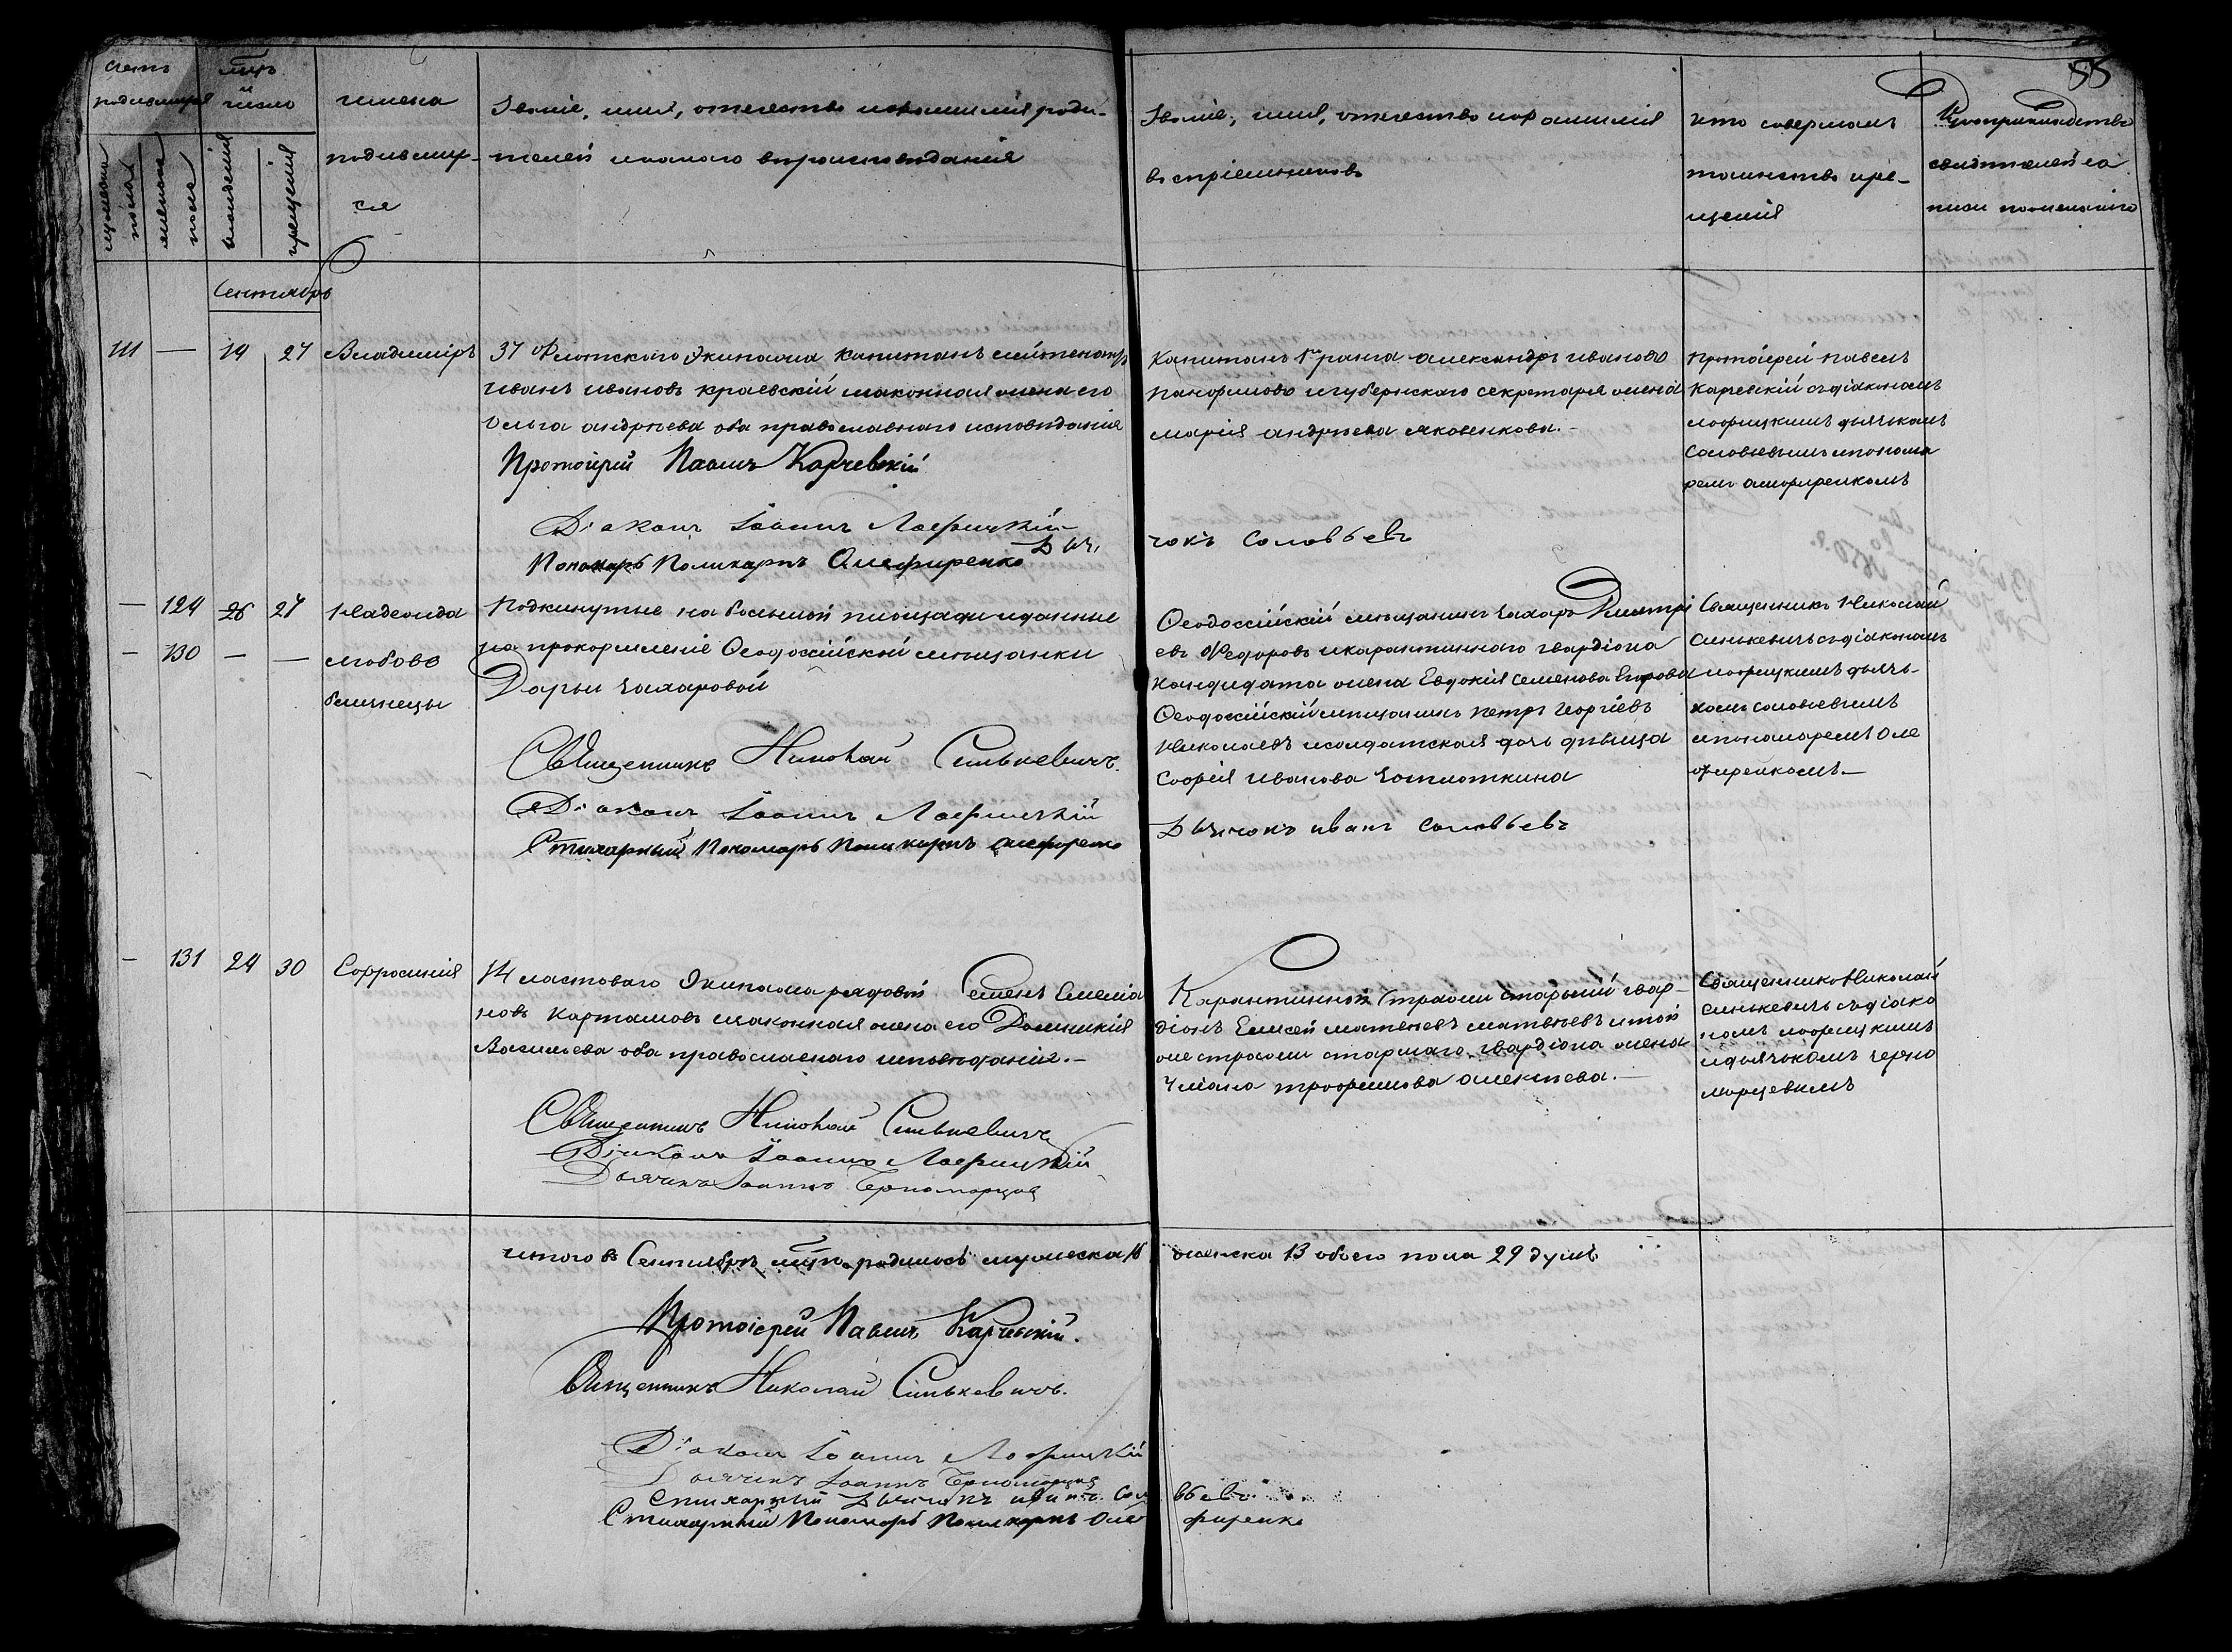 55
Счетъ
родившихся
мужеска
пола
женска
пола
мцъ
и
число
рожденія
крещенія
имена
родивших-
ся
Званіе, имя, отечество и фамилія роди-
телей и какого вѣроисповѣданія
Званіе, имя, отечество и фамилія
воспріемниковъ
кто совершалъ
таинство кре-
щенія
Рукоприкладство
свидѣтелей за
писи по желанію
Сентябрь
111 — 14 27 Владиміръ
37 Флотскаго Экипажа Капитанъ лейтенантъ
Иванъ Ивановъ Краевскій и законная жена его
Ольга Андреева оба православнаго исповѣданія
Протоіерей Павелъ Карчевскій
Діаконъ Іоаннъ Лафицкій
Пономарь Поликарпъ Олефиренко
Дьячокъ Соловьевъ
Капитанъ 1го ранга Александръ Ивановъ
Панфиловъ и губернскаго секретаря жена
Марія Андреева Яковенкова.-
Протоіерей Павелъ
Карчевскій съ діакономъ
Лафицкимъ дьячкомъ
Соловьевымъ и понома
ремъ Олефиренкомъ
— 129 26 27 Надежда
— 130 — — Любовь
близнецы
Подкинутые на большой площади и данные
на прокормленіе Ѳеодосійской мѣщанки
Дарьи Захаровой
Священникъ Николай Синькевичъ.
Діаконъ Іоаннъ Лафицкій
Стихарный Пономарь Поликарпъ Олефиренко
Ѳеодосійскій мѣщанинъ Захаръ Дмитрі
евъ Федоровъ и карантиннаго гвардіона
кандидата жена Евдокія Семенова Егорова
Ѳеодосійскій мѣщанинъ Петръ Георгіевъ
Николаевъ и солдатская дочь дѣвица
Софія Иванова
Дьячокъ Иванъ Соловьевъ
Священникъ Николай
Синькевичъ съ діакономъ
Лафицкимъ дьяч-
комъ Соловьевымъ
и пономаремъ Оле
фиренкомъ.—
— 131 24 30 Софросинія
14 ластоваго Экипажа рядовой Семенъ Емелія
новъ Карташовъ и законная жена его Домникія
Васильева оба православнаго исповѣданія.—
Священникъ Николай Синькевичъ
Діаконъ Іоаннъ Лафицкій
Дьячекъ Іоаннъ Черноморцевъ
Карантинной Стражи старшій гвар-
діонъ Елисей Матвѣевъ Матвѣевъ и той
же стражи старшаго гвардіона жена
Уліана Трофимова Алексѣева.—
Священникъ Николай
Синькевичъ съ діако
номъ Лафицкимъ
и дьячкомъ Черно
морцевымъ
итого въ Сентябрѣ мцѣ родилось мужеска 16 женска 13 обоего пола 29 душъ
Протоіерей Павелъ Карчевскій.
Священникъ Николай Синькевичъ.
Діаконъ Іоаннъ Лафицкій
Дьячекъ Іоаннъ Черноморцевъ
Стихарный Дьячокъ Иванъ Соловьевъ
Стихарный Пономарь Поликарпъ Олефиренко